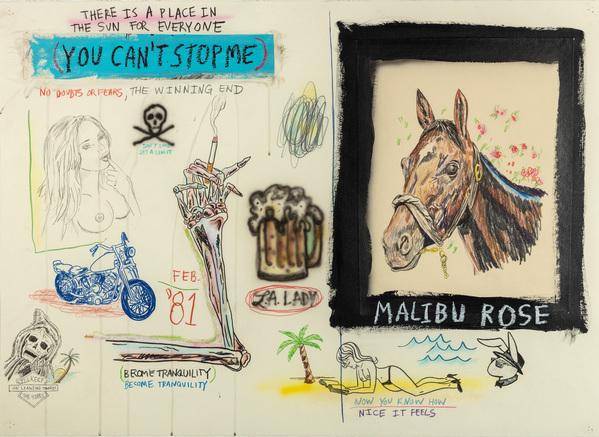 THERE IS A PLACE IN
THE SUN FOR EVERYONE
(YOU CAN'T STOP ME)
NO DOUBTS OR FEARS, THE WINNING END
FEB.
'81
L.A. LADY
MALIBU ROSE
BECOME TRANQUILITY
BECOME TRANQUILITY
NOW YOU KNOW HOW
NICE IT FEELS